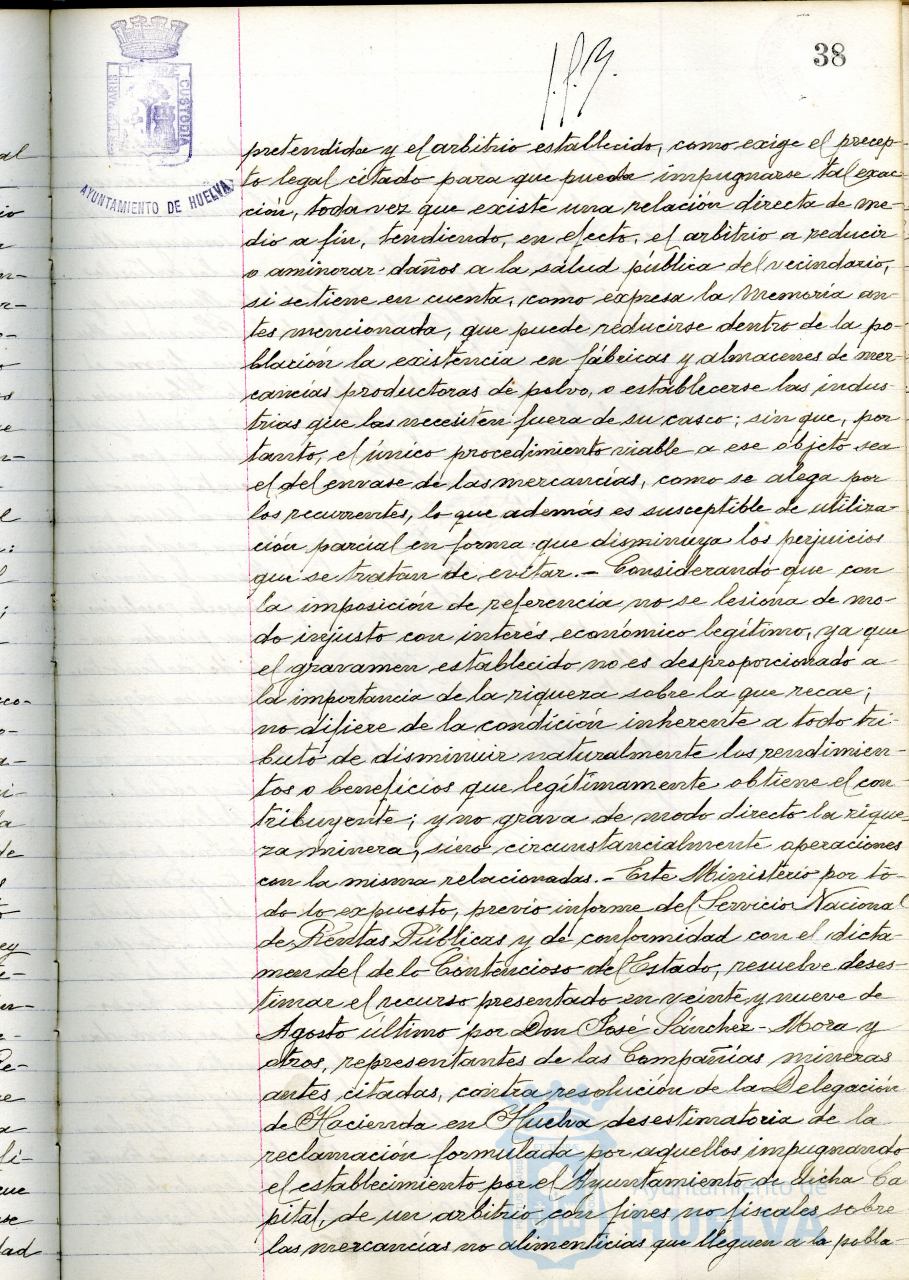 38
PORTUS MARIS
CUSTODIA
AYUNTAMIENTO DE HUELVA
pretendida y el arbitrio establecido, como exige el precep-
to legal citado para que pueda impugnarse tal exac-
ción, toda vez que existe una relación directa de me-
dio a fin, tendiendo, en efecto, el arbitrio a reducir
o aminorar daños a la salud pública del vecindario,
si se tiene en cuenta, como expresa la Memoria an-
tes mencionada, que puede reducirse dentro de la po-
blacion la existencia en fábricas y almacenes de mer-
cancías productoras de polvo, o establecerse las indus-
trias que las necesiten fuera de su casco; sin que, por
tanto, el único procedimiento viable a ese objeto sea
el del envase de las mercancías, como se alega por
los recurrentes, lo que además es susceptible de utiliza-
ción parcial en forma que disminuya los perjuicios
que se tratan de evitar.- Considerando que con
la imposición de referencia no se lesiona de mo-
do injusto con interés económico legítimo, ya que
el gravamen establecido no es desproporcionado a
la importancia de la riqueza sobre la que recae;
no difiere de la condición inherente a todo tri-
buto de disminuir naturalmente los rendimien-
tos o beneficios que legítimamente obtiene el con-
tribuyente; y no grava de modo directo la rique-
za minera, sino circunstancialmente operaciones
con la misma relacionadas.- Este Ministerio por to-
do lo expuesto, previo informe del Servicio Nacional
de Rentas Públicas y de conformidad con el dicta-
men del de lo Contencioso del Estado, resuelve deses-
timar el recurso presentado en veinte y nueve de
Agosto último por Don José Sánchez-Mora y
otros, representantes de las Compañías mineras
antes citadas, contra resolución de la Delegación
de Hacienda en Huelva desestimatoria de la
reclamación formulada por aquellos impugnando
el establecimiento por el Ayuntamiento de dicha Ca-
pital, de un arbitrio con fines no fiscales sobre
las mercancías no alimenticias que lleguen a la pobla-
Ayuntamiento de
HUELVA